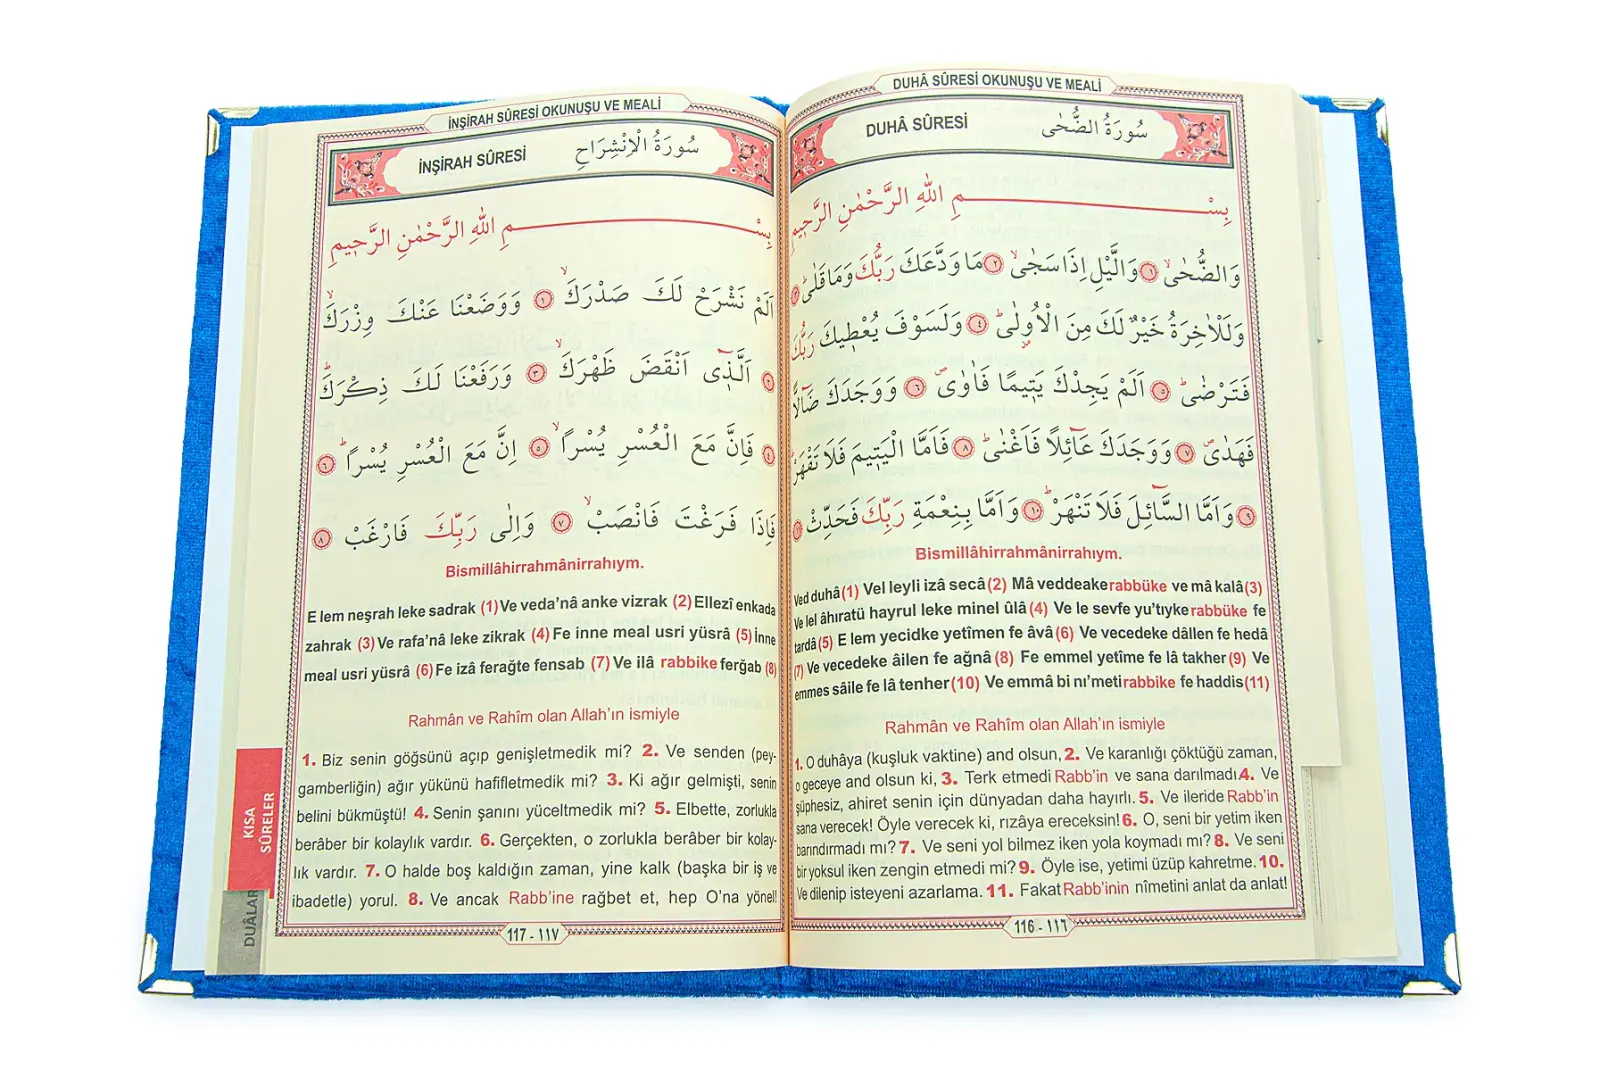 DUHÂ SÛRESİ OKUNUŞU VE MEALİ
DUHÂ SÛRESİ سُورَةُ الضُّحٰى
بِسْمِ اللّٰهِ الرَّحْمٰنِ الرَّحٖيمِ
وَالضُّحٰىۙ ﴿١﴾ وَالَّيْلِ اِذَا سَجٰىۙ ﴿٢﴾ مَا وَدَّعَكَ رَبُّكَ وَمَا قَلٰىۜ ﴿٣﴾
وَلَلْاٰخِرَةُ خَيْرٌ لَكَ مِنَ الْاُو۫لٰىۜ ﴿٤﴾ وَلَسَوْفَ يُعْطٖيكَ رَبُّكَ
فَتَرْضٰىۜ ﴿٥﴾ اَلَمْ يَجِدْكَ يَتٖيمًا فَاٰوٰىۖ ﴿٦﴾ وَوَجَدَكَ ضَٓالًّا
فَهَدٰىۖ ﴿٧﴾ وَوَجَدَكَ عَٓائِلًا فَاَغْنٰىۜ ﴿٨﴾ فَاَمَّا الْيَتٖيمَ فَلَا تَقْهَرْۜ
﴿٩﴾ وَاَمَّا السَّٓائِلَ فَلَا تَنْهَرْۜ ﴿١٠﴾ وَاَمَّا بِنِعْمَةِ رَبِّكَ فَحَدِّثْ ﴿١١﴾
Bismillâhirrahmânirrahıym.
Ved duhâ(1) Vel leyli izâ secâ(2) Mâ veddeakerabbüke ve mâ kalâ(3)
Ve lel âhıratü hayrul leke minel ûlâ(4) Ve le sevfe yu'tıyke rabbüke fe
tardâ(5) E lem yecidke yetîmen fe âvâ(6) Ve vecedeke dâllen fe hedâ
(7) Ve vecedeke âilen fe ağnâ(8) Fe emmel yetîme fe lâ takher(9) Ve
emmes sâile fe lâ tenher(10) Ve emmâ bi nı'metirabbike fe haddis(11)
Rahmân ve Rahîm olan Allah'ın ismiyle
1. O duhâya (kuşluk vaktine) and olsun, 2. Ve karanlığı çöktüğü zaman,
o geceye and olsun ki, 3. Terk etmedi Rabb'in ve sana darılmadı 4. Ve
şüphesiz, ahiret senin için dünyadan daha hayırlı. 5. Ve ileride Rabb'in
sana verecek! Öyle verecek ki, rızâya ereceksin! 6. O, seni bir yetim iken
barındırmadı mı? 7. Ve seni yol bilmez iken yola koymadı mı? 8. Ve seni
bir yoksul iken zengin etmedi mi? 9. Öyle ise, yetimi üzüp kahretme. 10.
Ve dilenip isteyeni azarlama. 11. Fakat Rabb'inin nîmetini anlat da anlat!
116 - ١١٦
İNŞİRAH SÛRESİ OKUNUŞU VE MEALİ
İNŞİRAH SÛRESİ سُورَةُ الْاِنْشِرَاحِ
بِسْمِ اللّٰهِ الرَّحْمٰنِ الرَّحٖيمِ
اَلَمْ نَشْرَحْ لَكَ صَدْرَكَۙ ﴿١﴾ وَوَضَعْنَا عَنْكَ وِزْرَكَۙ
﴿٢﴾ اَلَّذٖٓى اَنْقَضَ ظَهْرَكَۙ ﴿٣﴾ وَرَفَعْنَا لَكَ ذِكْرَكَۜ
﴿٤﴾ فَاِنَّ مَعَ الْعُسْرِ يُسْرًاۙ ﴿٥﴾ اِنَّ مَعَ الْعُسْرِ يُسْرًاۜ ﴿٦﴾
فَاِذَا فَرَغْتَ فَانْصَبْۙ ﴿٧﴾ وَاِلٰى رَبِّكَ فَارْغَبْ ﴿٨﴾
Bismillâhirrahmânirrahıym.
E lem neşrah leke sadrak (1)Ve veda'nâ anke vizrak (2)Ellezî enkada
zahrak (3)Ve rafa'nâ leke zikrak (4)Fe inne meal usri yüsrâ (5)İnne
meal usri yüsrâ (6)Fe izâ ferağte fensab (7)Ve ilâ rabbike ferğab (8)
Rahmân ve Rahîm olan Allah'ın ismiyle
1. Biz senin göğsünü açıp genişletmedik mi? 2. Ve senden (pey-
gamberliğin) ağır yükünü hafifletmedik mi? 3. Ki ağır gelmişti, senin
belini bükmüştü! 4. Senin şanını yüceltmedik mi? 5. Elbette, zorlukla
berâber bir kolaylık vardır. 6. Gerçekten, o zorlukla berâber bir kolay-
lık vardır. 7. O halde boş kaldığın zaman, yine kalk (başka bir iş ve
ibadetle) yorul. 8. Ve ancak Rabb'ine rağbet et, hep O'na yönel!
117 - ١١٧
KISA
SÛRELER
DUÂLAR